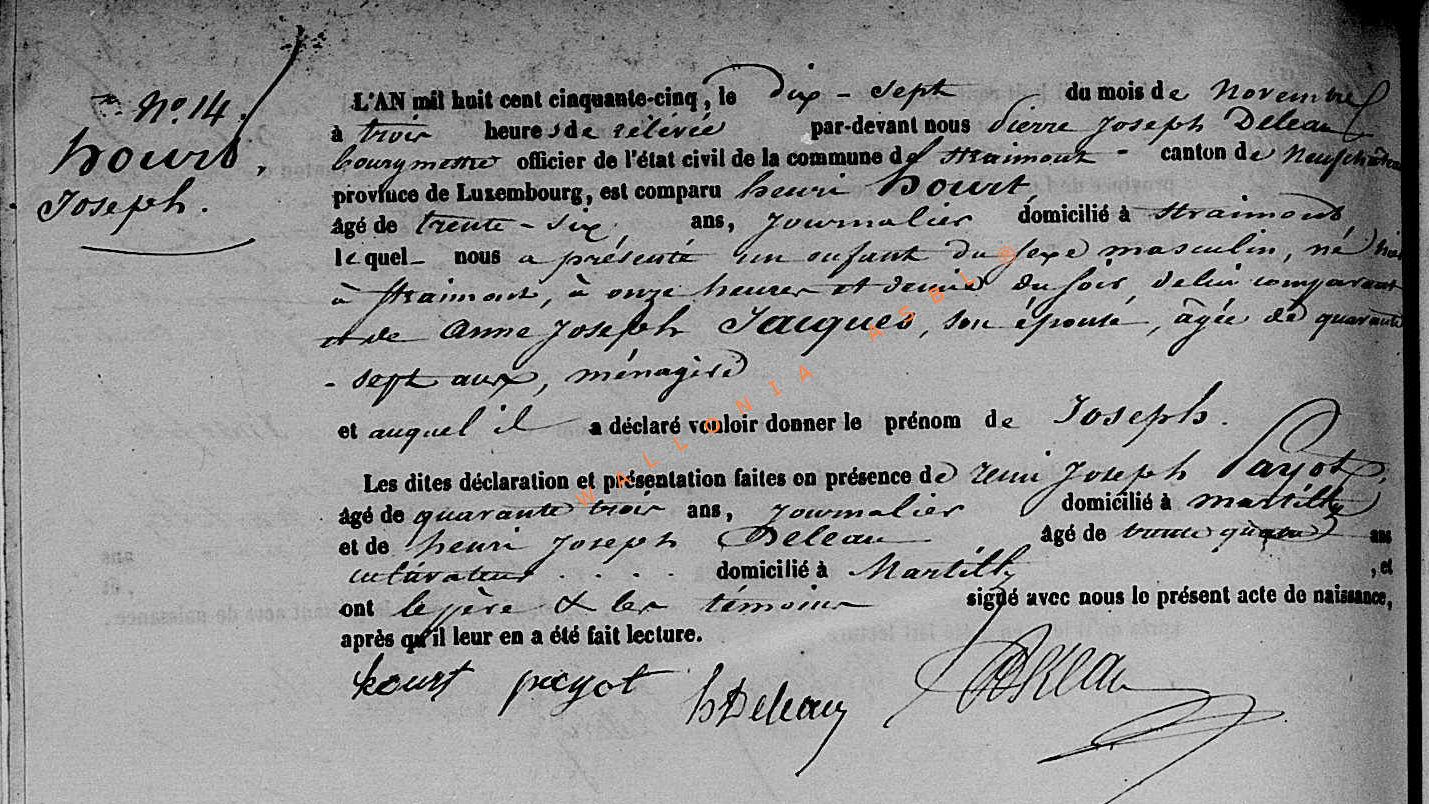 N° 14.
hourt,
Joseph.
L'AN mil huit cent cinquante-cinq, le dix-sept du mois de Novembre
à trois heures de relevée par-devant nous Pierre Joseph Deleau
bourgmestre officier de l'état civil de la commune de Straimont - canton de Neufchâteau
province de Luxembourg, est comparu henri hourt,
âgé de trente-six, ans, journalier domicilié à Straimont
lequel nous a présenté un enfant du sexe masculin, né hier
à Straimont, à onze heures et demie du soir, de lui comparant
et de Anne Joseph Jacques, son épouse, âgée de quarante
- sept ans, ménagère
et auquel il a déclaré vouloir donner le prénom de Joseph.
Les dites déclaration et présentation faites en présence de remi Joseph Payot,
âgé de quarante trois ans, journalier domicilié à Martilly
et de henri Joseph Deleau âgé de trente quatre ans
cultivateur . . . . domicilié à Martilly , et
ont le père & les témoins signé avec nous le présent acte de naissance,
après qu'il leur en a été fait lecture.
hourt payot h Deleau Deleau
WALLONIA ASBL ©